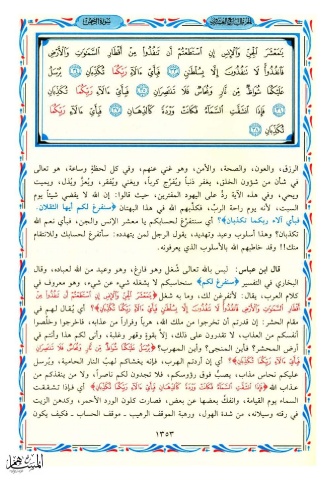 يَٰمَعْشَرَ ٱلْجِنِّ وَٱلْإِنسِ إِنِ ٱسْتَطَعْتُمْ أَن تَنفُذُوا۟ مِنْ أَقْطَارِ ٱلسَّمَٰوَٰتِ وَٱلْأَرْضِ
فَٱنفُذُوا۟ لَا تَنفُذُونَ إِلَّا بِسُلْطَٰنٍ ﴿٣٣﴾ فَبِأَىِّ ءَالَآءِ رَبِّكُمَا تُكَذِّبَانِ ﴿٣٤﴾ يُرْسَلُ
عَلَيْكُمَا شُوَاظٌ مِّن نَّارٍ وَنُحَاسٌ فَلَا تَنتَصِرَانِ ﴿٣٥﴾ فَبِأَىِّ ءَالَآءِ رَبِّكُمَا تُكَذِّبَانِ
﴿٣٦﴾ فَإِذَا ٱنشَقَّتِ ٱلسَّمَآءُ فَكَانَتْ وَرْدَةً كَٱلدِّهَانِ ﴿٣٧﴾ فَبِأَىِّ ءَالَآءِ رَبِّكُمَا
تُكَذِّبَانِ ﴿٣٨﴾
الرزق، والعون، والصحة، والأمن، وهو غني عنهم، وفي كل لحظةٍ وساعة، هو تعالى
في شأن من شؤون الخلق، يغفر ذنباً ويُفرّج كرباً، ويغني ويُفقر، ويُعزُّ ويُذل، ويميت
ويحيي، وفي هذه الآية ردٌّ على اليهود المفترين، حيث قالوا: إن الله لا يقضي شيئاً يوم
السبت، لأنه يوم راحة الربِّ، فكذَّبهم الله في هذا البهتان ﴿سنفرغ لكم أيها الثقلان.
فبأي آلاء ربكما تكذبان﴾؟ أي سنتفرَّغ لحسابكم يا معشر الإنس والجن، فبأي نعم الله
تكذبان؟ وهذا أسلوب وعيد وتهديد، يقول الرجل لمن يتهدده: سأتفرغ لحسابك وللانتقام
منك!! وقد خاطبهم الله بالأسلوب الذي يعرفونه.
قال ابن عباس: ليس بالله تعالى شُغل وهو فارغ، وهو وعيد من الله لعباده، وقال
البخاري في التفسير ﴿سنفرغ لكم﴾ سنحاسبكم لا يشغله شيء عن شيء، وهو معروف في
كلام العرب، يقال: لأتفرغن لك، وما به شغل ﴿يَٰمَعْشَرَ ٱلْجِنِّ وَٱلْإِنسِ إِنِ ٱسْتَطَعْتُمْ أَن تَنفُذُوا۟ مِنْ
أي يُقال لهم في
مقام الحشر: إن قدرتم أن تخرجوا من ملك الله، هرباً وفراراً من عذابه، فاخرجوا وخلِّصوا
أنفسكم من العذاب، لا تقدرون على ذلك، إلَّا بقوةٍ وقهرٍ وغلبة، وأنى لكم هذا وأنتم في
أرض المحشر؟ فأين المنجى؟ وأين المهرب؟ ﴿يُرْسَلُ عَلَيْكُمَا شُوَاظٌ مِّن نَّارٍ وَنُحَاسٌ فَلَا تَنتَصِرَانِ
فَبِأَىِّ ءَالَآءِ رَبِّكُمَا تُكَذِّبَانِ﴾؟ أي إن أردتم الهرب، فإنه يغشاكم لهب النار الحامية، ويُرسل
عليكم نحاس مذاب، يصبُّ فوق رؤوسكم، فلا تجدون لكم ناصراً، ولا من ينقذكم من
عذاب الله ﴿فَإِذَا ٱنشَقَّتِ ٱلسَّمَآءُ فَكَانَتْ وَرْدَةً كَٱلدِّهَانِ فَبِأَىِّ ءَالَآءِ رَبِّكُمَا تُكَذِّبَانِ﴾ أي فإذا تشققت
السماء يوم القيامة، وانفكَّ بعضها عن بعض، فصارت كلون الورد الأحمر، وكدهن الزيت
في رقته وسيلانه، من شدة الهول، ورهبة الموقف الرهيب ـ موقف الحساب ـ فكيف يكون
١٣٥٣